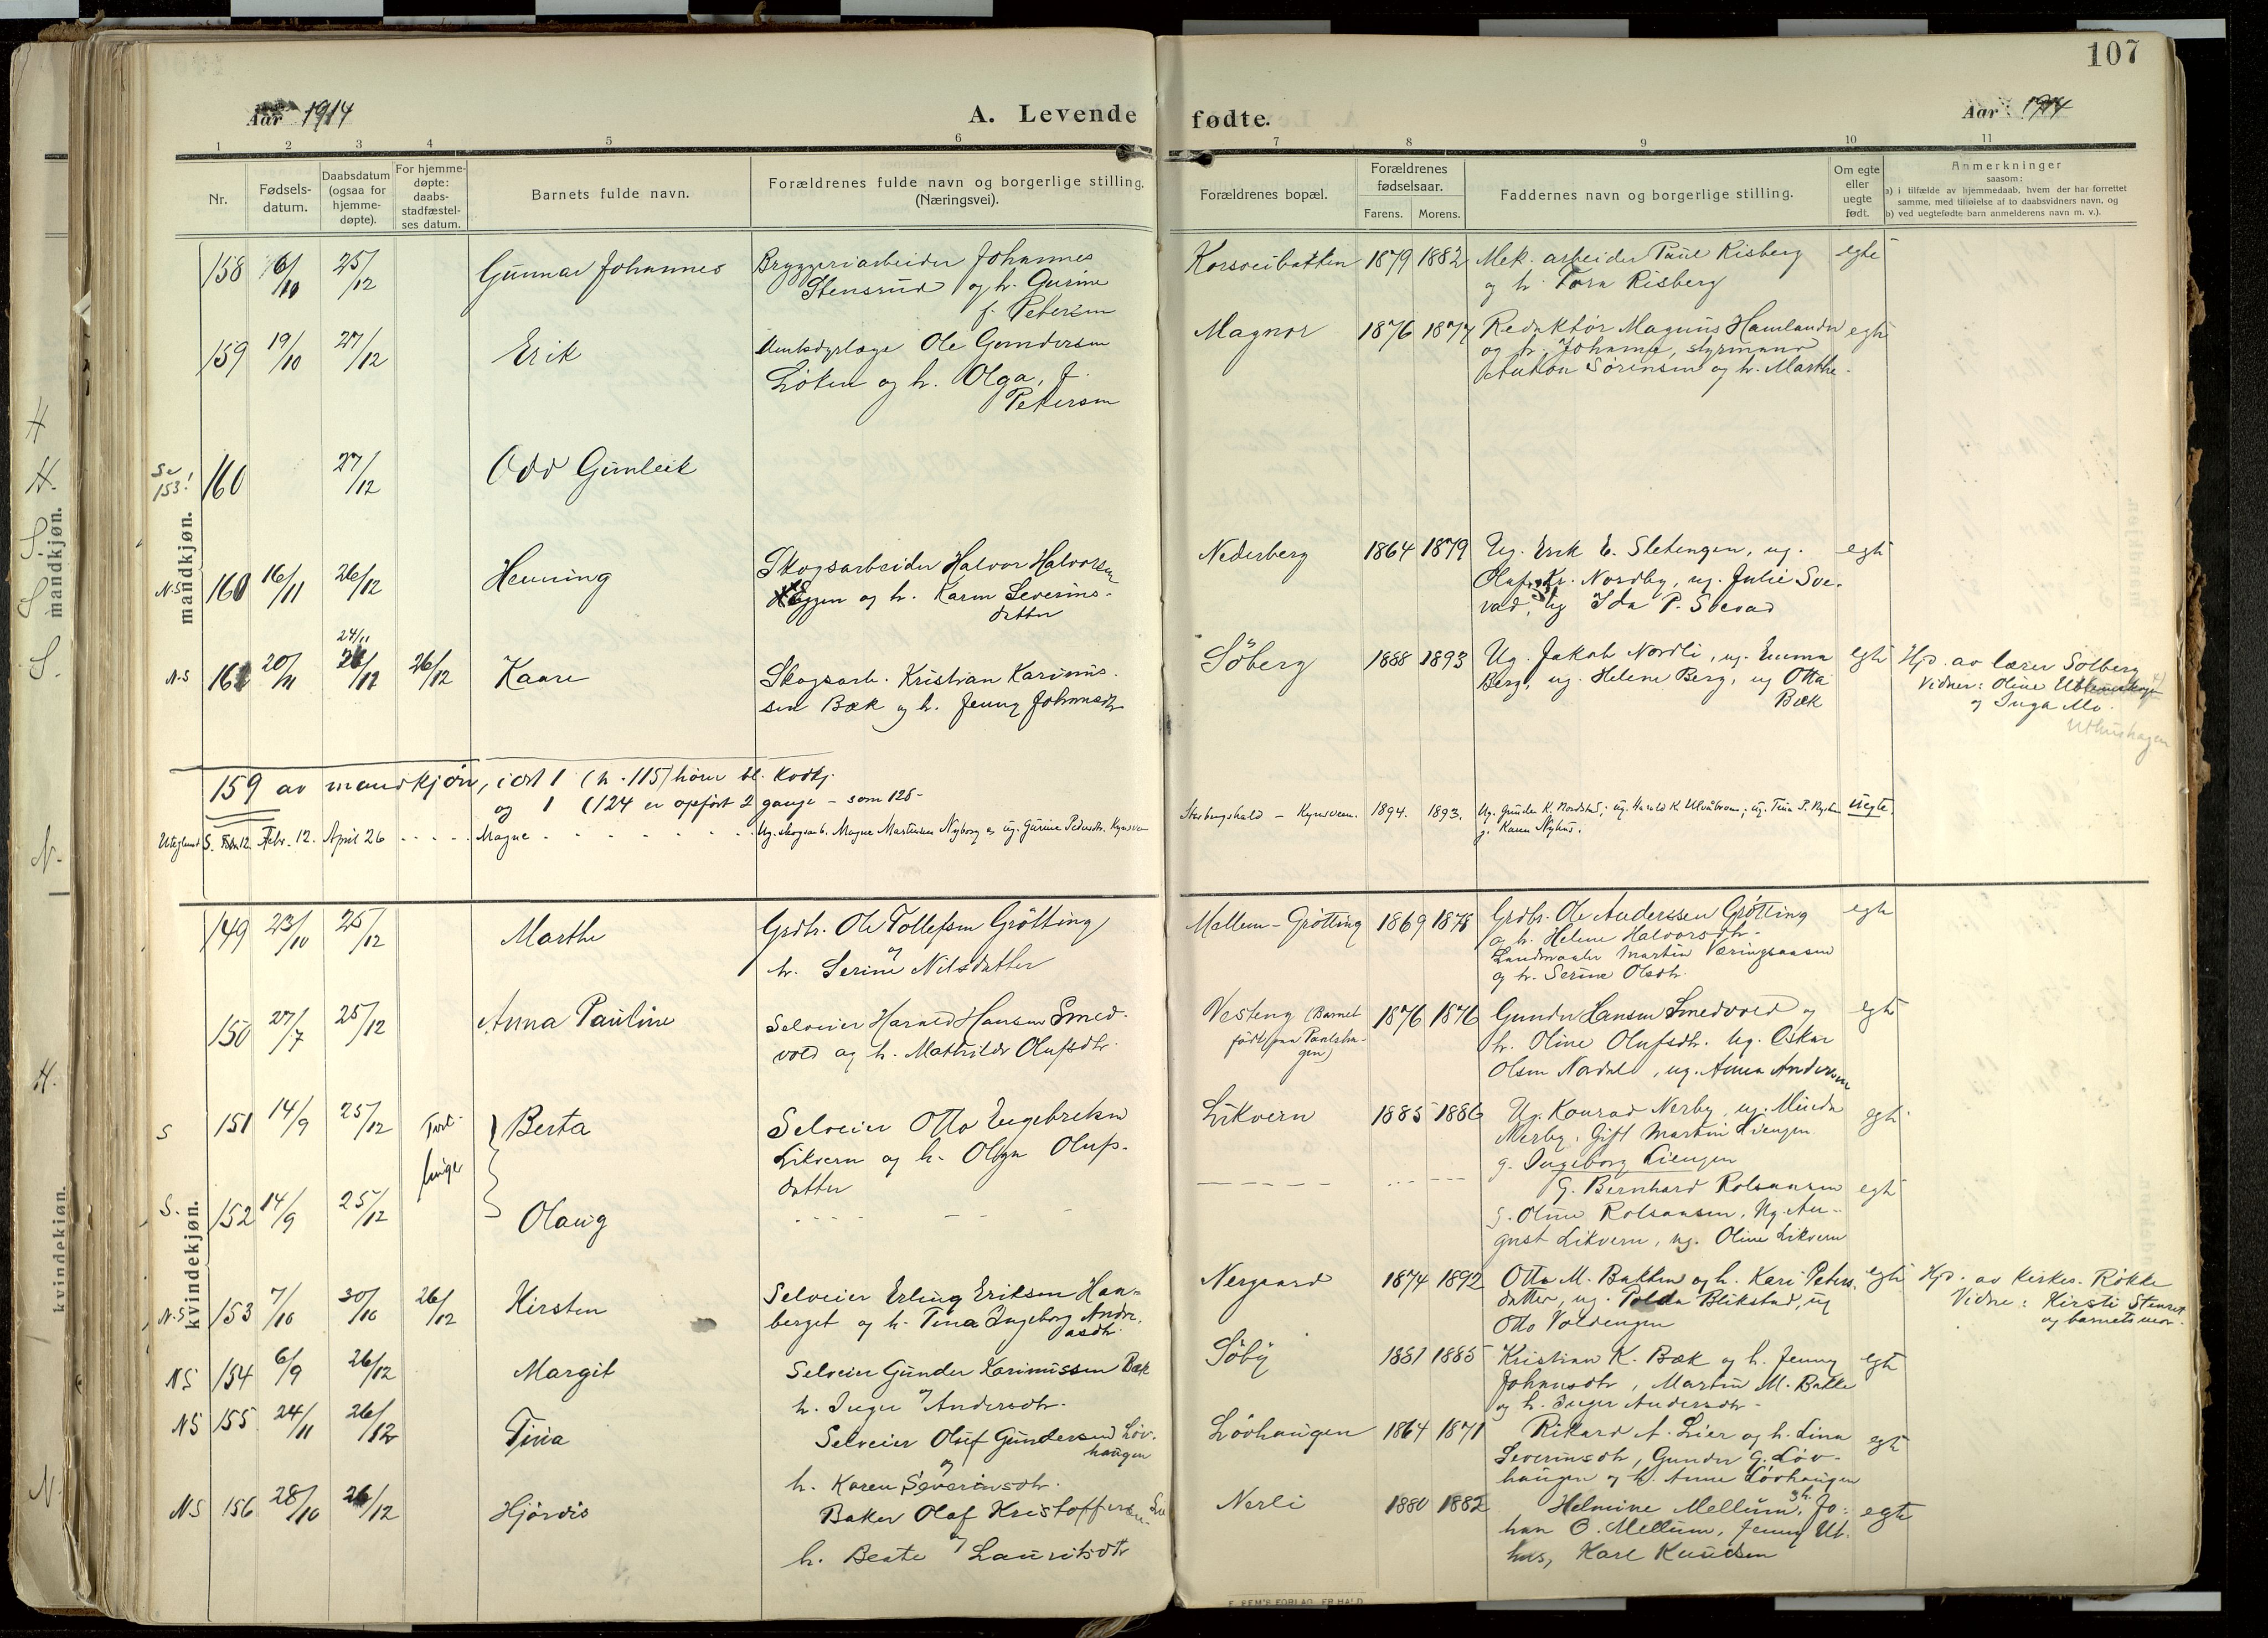 107
Aar 1914
A. Levende
fødte.
Aar 1914
1 2 3 4 5 6 7 8 9 10 11
Nr.
Fødsels-
datum.
Daabsdatum
(ogsaa for
hjemme-
døpte).
For hjemme-
døpte:
daabs-
stadfæstel-
ses datum.
Barnets fulde navn.
Forældrenes fulde navn og borgerlige stilling.
(Næringsvei).
Forældrenes bopæl.
Forældrenes
fødselsaar.
Farens. Morens.
Faddernes navn og borgerlige stilling.
Om egte
eller
uegte
født.
Anmerkninger
saasom:
a) i tilfælde av hjemmedaab, hvem der har forrettet
samme, med tilføielse af to daabsvidners navn, og
b) ved uegtefødte barn anmelderens navn m. v.).
mandkjøn.
158 6/10 25/12 Gunnar Johannes
Bryggeriarbeider Johannes
Stensrud og h. Gurine
f. Petersen
Korsveibakken 1879 1882
Mek. arbeider Paul Risberg
og h. Tora Risberg
egte
159 19/10 27/12 Erik
Ole Gundersen
Løken og h. Olga, f.
Petersen
Magnor 1876 1877
Redaktør Magnus Hamlander
og h. Johanna, styrmand
Anton Sørensen og h. Marthe.
egte
Se
153!
160 27/12 Odd Gunleik
N.S 160 16/11 26/12 Henning
Skogsarbeider Halvor Halvorsen
Eggen og h. Karen Severins-
datter
Nederberg 1864 1879
Ug. Erik E. Sletengen, ug.
Olaf Kr. Nordby, ug. Julie Sve-
vad, ug Ida P. Svevad
egte
N.S 161 20/11 24/11 26/12 Kaare
Skogsarb. Kristian Karinus-
sen Bæk og h. Jenny Johansdtr
Söberg 1888 1893
Ug. Jakob Nordli, ug. Emma
Berg, ug. Helene Berg, ug Otta
Bæk
egte
Hjd. av lærer Solberg
Vidner: Oline
og Inga Mo.
Uthushagen
159 av mandkjøn, idet 1 (n. 115) hører bl. kvdkj.
og 1 (124 er opført 2 gange - som 125-
S. Febr. 12. April 26 Magne
Ug. skogsarb. Magne Martinsen Nyborg og ug. Gurine Pedersdtr. Kynsveen
Kynsveen. 1894. 1893.
Ug. Gunder K. Nordstad; ug. Harald K.
g. Karen Nyhus.
uegte.
kvindekjøn.
149 23/10 25/12 Marthe
Grdbr. Ole Tollefsen Grötting
og
h. Serine Nilsdatter
Mellem-Grötting 1869 1878
Grdbr. Ole Anderssen Grötting
og h. Helene Halvorsdtr-
Landmaaler Martin Væringsaasen
og h. Serine Olsdtr.
egte
150 27/7 25/12 Anna Pauline
Selveier Harald Hansen Smed-
vold og h. Mathilde Olufsdtr.
Vesteng (Barnet
født paa Paulsha-
gen)
1876 1876
Gunder Hansen Smedvold og
h. Oline Olufsdtr. Ug. Oskar
Olsen Nordal, ug. Anna Andersen
egte
S 151 14/9 25/12 Tvil-
linger
Berta
Selveier Otto Engebretsen
Likvern og h. Olga Olufs-
datter
Likvern 1885 1886
Ug. Konrad Nerby, ug. Minda
Nerby. Gift Martin Liengen
g. Ingeborg Liengen
egte
S. 152 14/9 25/12 Olaug
G. Bernhard Rolsaasen
g. Oline Rolsaasen, Ug. Au-
gust Likvern, ug. Oline Likvern
egte
N.S 153 7/10 30/10 26/12 Kirsten
Selveier Erling Eriksen Han-
berget og h. Tina Ingeborg Andre-
asdtr.
Nergaard 1874 1892
Otto M. Bakken og h. Kari Peters-
datter, ug. Polda Blikstad, ug
Otto Voldengen
egte
Hjd. av kirkes. Røkke
Vidne: Kirsti
og barnets mor.
NS 154 6/9 26/12 Margit
Selveier Gunder Karinussen Bæk
og
h. Inger Andersdtr.
Söby 1881 1885
Kristian K. Bæk og h. Jenny
Johansdtr, Martin M. Bakke
og h. Inger Andersdtr-
egte
NS 155 24/11 26/12 Tina
Selveier Oluf Gundersen Löv-
haugen
og
h. Karen Severinsdtr.
Lövhaugen 1864 1871
Rikard A. Lier og h. Lina
Severinsdtr, Gunder G. Löv-
haugen og h. Anne Lövhaugen
egte
NS 156 28/10 26/12 Hjørdis
Baker Olaf Kristoffersen
og
h. Beate Lauritsdtr
Nerli 1880 1882
Helmine Mellum, Jo-
han O. Mellum, Jenny Ut-
hus, Karl Knudsen
egte
mandkjøn.
kvindekjøn.